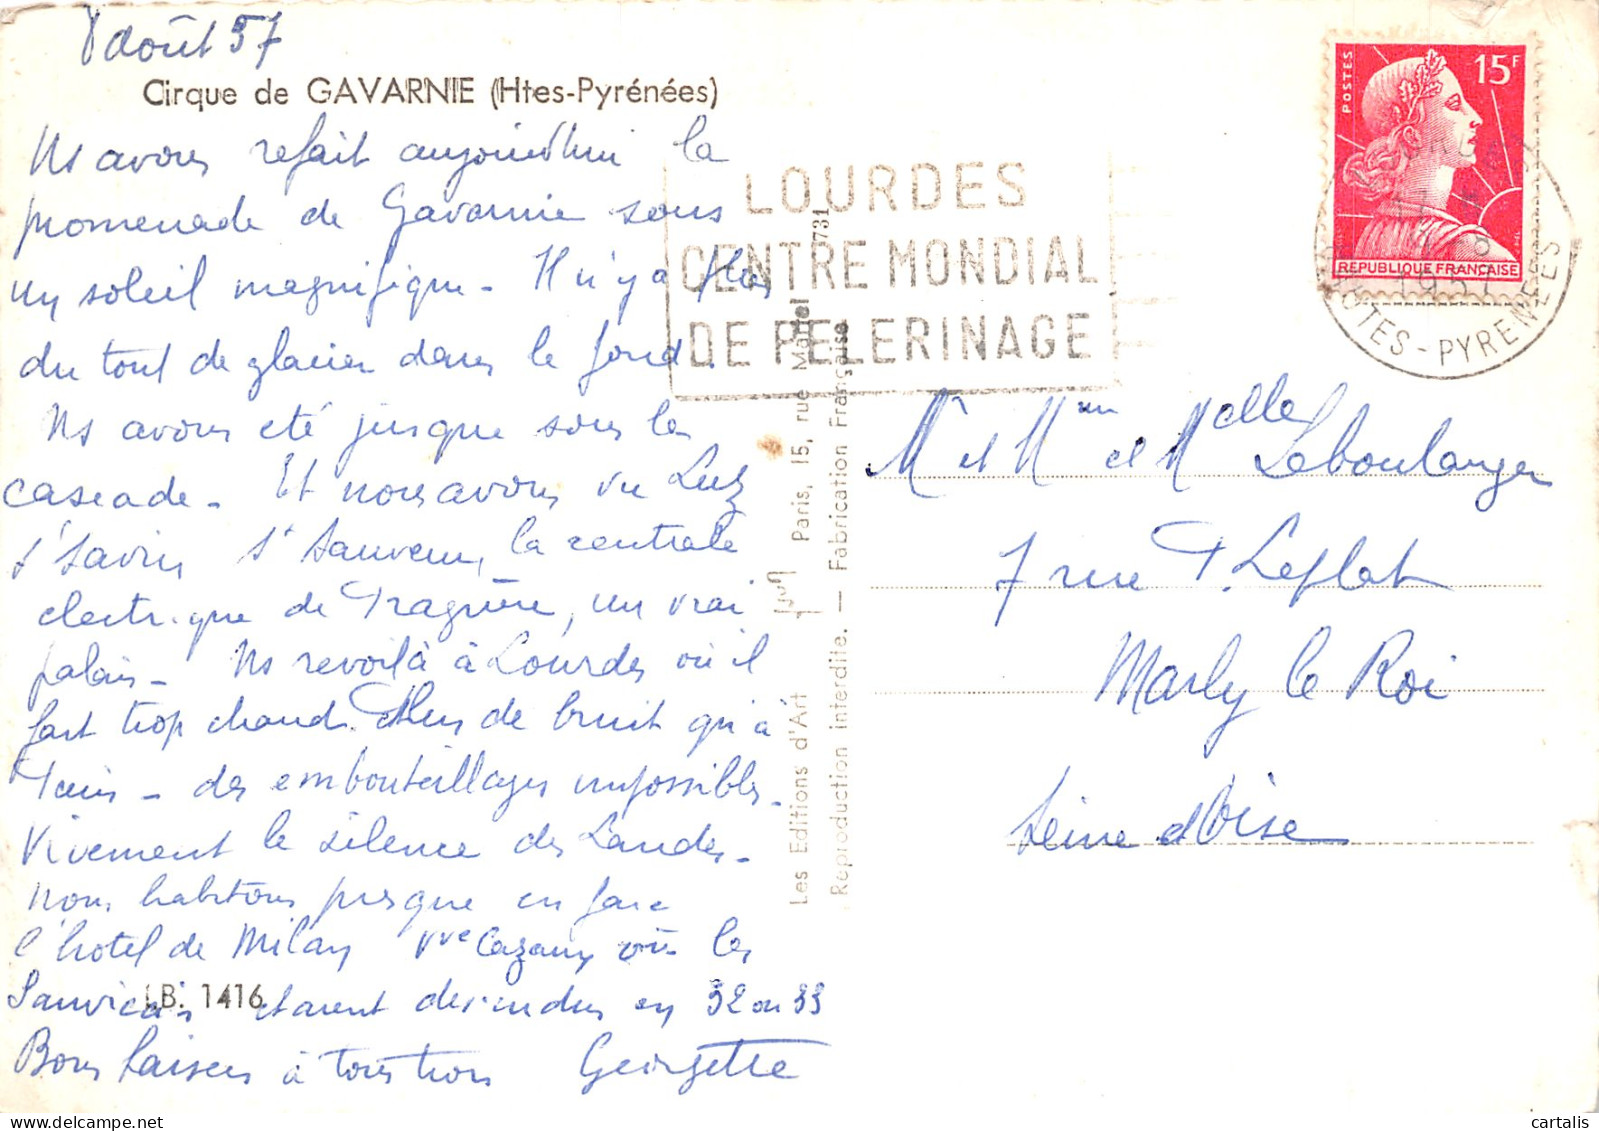 8 août 57
Cirque de GAVARNIE (Htes-Pyrénées)
Ns avons refait aujourd'hui la
promenade de Gavarnie sous
un soleil magnifique - Il n'y a plus
du tout de glacier dans le fond.
Ns avons été jusque sous la
cascade - Et nous avons vu Luz
St Savin St Sauveur, la centrale
électrique de Pragnère, un vrai
palais - Ns revoilà à Lourdes où il
fait trop chaud. Plus de bruit qu'à
Paris - des embouteillages impossibles -
Vivement le silence des Landes -
Nous habitons presque en face
l'hôtel de Milan Vve Cazaux où les
étaient descendus en 32 ou 33
Bons baisers à tous trois Georgette
LB. 1416
LOURDES
CENTRE MONDIAL
DE PELERINAGE
Les Editions d'Art Paris, 15, rue Martel
Reproduction interdite. — Fabrication Française
731
POSTES
15F
REPUBLIQUE FRANÇAISE
1957
HAUTES-PYRENEES
Mr et Mme et Melle Leboulanger
7 rue T. Leplat
Marly le Roi
Seine et Oise
cartalis